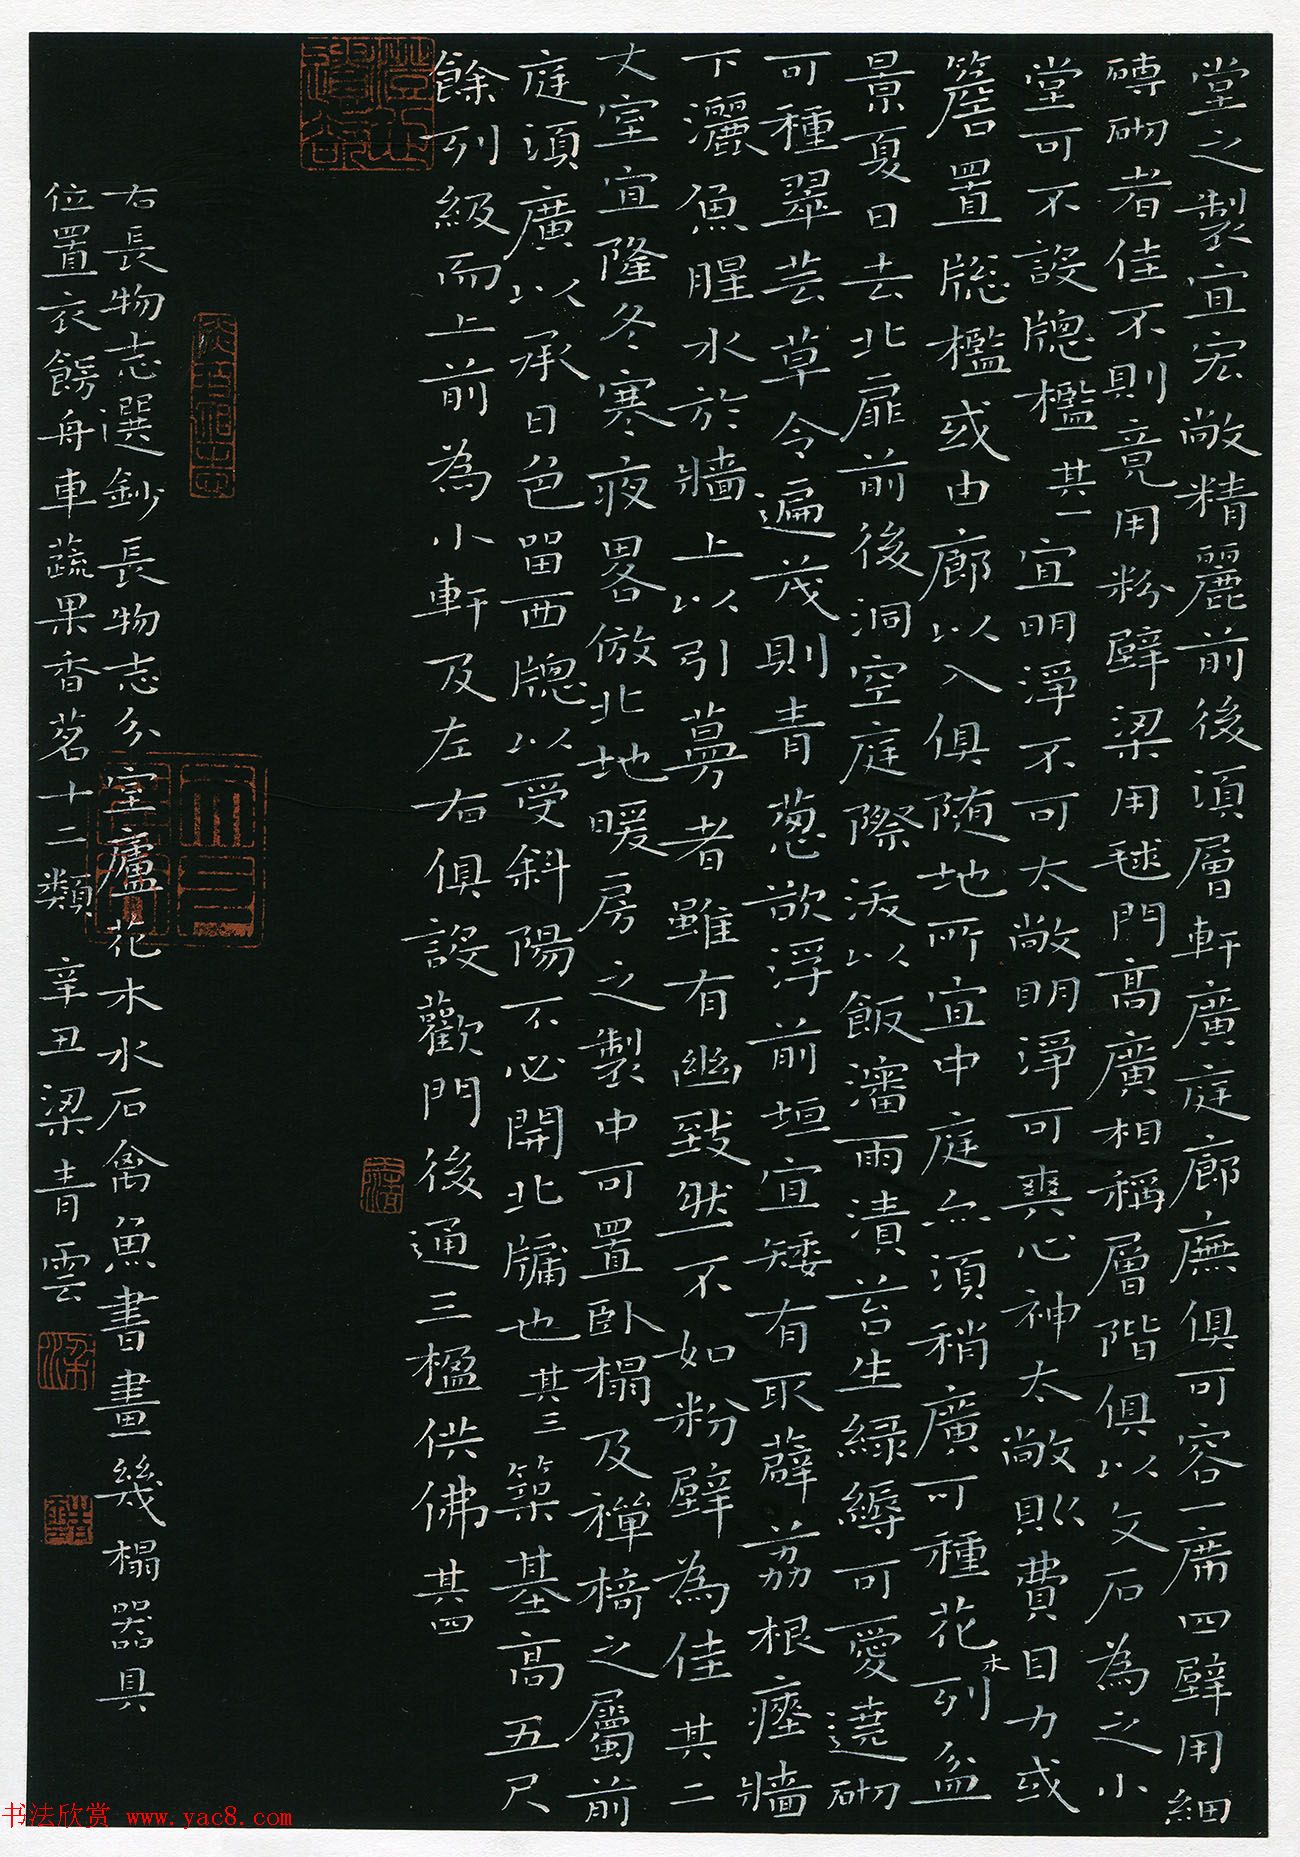 堂之製宜宏敞精麗前後須層軒廣庭廊廡俱可容一席四壁用細
磚砌者佳不則竟用粉壁梁用毬門高廣相稱層階俱以文石為之小
堂可不設牕檻其一 宜明淨不可太敞明淨可爽心神太敞則費目力或
簷置牕檻或由廊以入俱随地所宜中庭亦須稍廣可種花木列盆
景夏日去北扉前後洞空庭際沃以飯瀋雨漬苔生緑縟可愛遶砌
可種翠芸草令遍茂則青葱欲浮前垣宜矮有取薜荔根瘞牆
下灑魚腥水於牆上以引蔓者雖有幽致然不如粉壁為佳其二
丈室宜隆冬寒夜畧倣北地暖房之製中可置臥榻及禅椅之屬前
庭須廣以承日色留西牕以受斜陽不必開北牖也其三 築基高五尺
餘列級而上前為小軒及左右俱設歡門後通三楹供佛其四
右長物志選鈔長物志分室廬花木水石禽魚書畫幾榻器具
位置衣飾舟車蔬果香茗十二類 辛丑梁青雲
书法欣赏 www.yac8.com